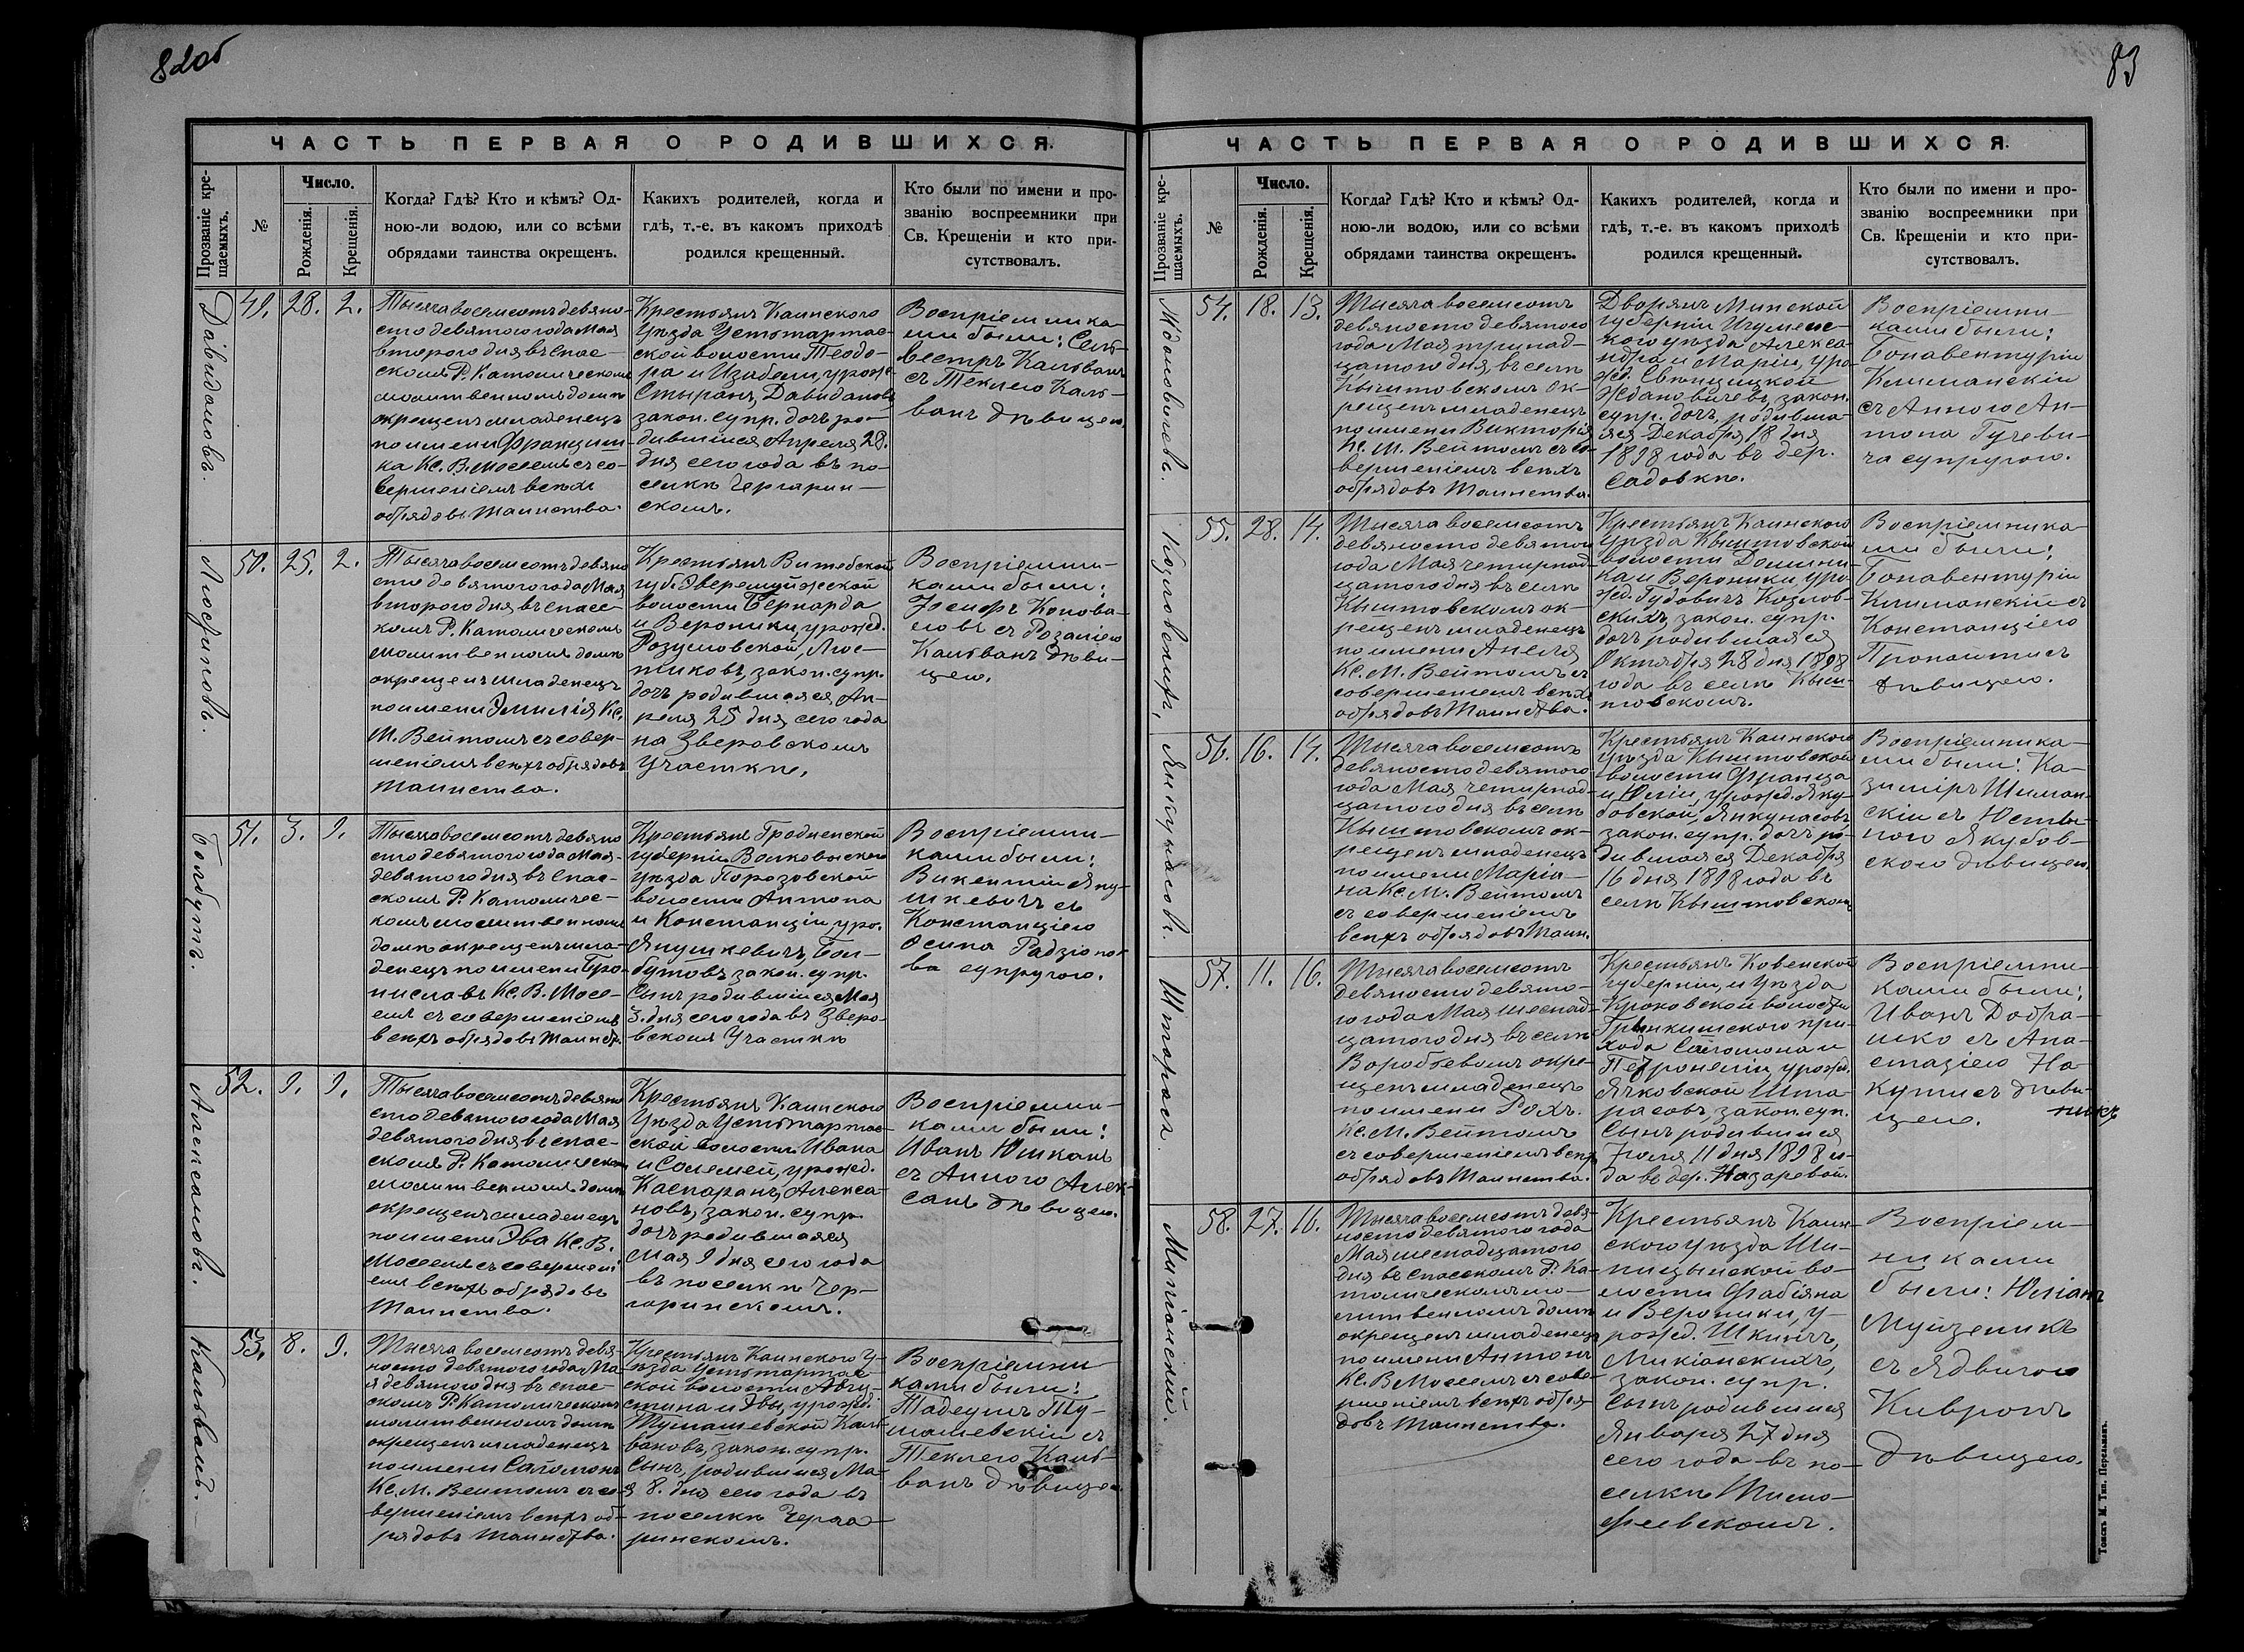 82об
ЧАСТЬ ПЕРВАЯ О РОДИВШИХСЯ.
Прозваніе кре-
щаемыхъ.
№
Число.
Рожденія.
Крещенія.
Когда? Гдѣ? Кто и кѣмъ? Од-
ною-ли водою, или со всѣми
обрядами таинства окрещенъ.
Какихъ родителей, когда и
гдѣ, т.-е. въ какомъ приходѣ
родился крещенный.
Кто были по имени и про-
званію воспреемники при
Св. Крещеніи и кто при-
сутствовалъ.
49. 28. 2.
Тысяча восемсотъ девяно-
сто девятого года Мая
второго дня въ Спас-
скомъ Р. Католическомъ
молитвенномъ домѣ
окрещенъ младенецъ
по имени Францишка
Кс. В. Моселемъ съ со-
вершеніемъ всѣхъ
обрядовъ Таинства.
Крестьянъ Каинского
Уѣзда Устьтартас-
ской волости Теодо-
ра и Изабели, урож.
Стыранъ, Давидановъ
закон. супр. дочь ро-
дившаяся Апреля 28.
дня сего года въ по-
селкѣ
скомъ.
Воспріемника-
ми были: Силь-
вестръ Кальванъ
съ Теклею Каль-
ванъ дѣвицею.
50. 25. 2.
Тысяча восемсотъ девяно
сто девятого года Мая
второго дня въ Спасс-
комъ Р. Католическомъ
молитвенномъ домѣ
окрещенъ младенецъ
по имени Эмилія Кс.
М. Вейтомъ съ совер-
шеніемъ всѣхъ обрядовъ
Таинства.
Крестьянъ Витебской
губ.
волости Бернарда
и Вероники, урожд.
Розумовской,
закон. супр.
дочь родившаяся Ап-
реля 25 дня сего года
на Зверовскомъ
Участкѣ.
Воспріемни-
ками были:
Іосифъ Конова-
ловъ съ Розаліею
Кальванъ дѣви-
цею.
51. 3. 9.
Тысяча восемсотъ девяно
сто девятого года Мая
девятого дня въ Спас-
скомъ Р. Католичес-
комъ молитвенномъ
домѣ окрещенъ мла-
денецъ по имени Бро-
ниславъ Кс. В. Мосе-
лемъ съ совершеніемъ
всѣхъ обрядовъ Таинст.
Крестьянъ Гродненской
губерніи Волковыского
уѣзда Порозовской
волости Антона
и Констанціи, уро.
Янушкевичъ,
закон. супр.
Сынъ родившійся Мая
3. дня сего года въ Зверо-
вскомъ Участкѣ
Воспріемни-
ками были:
Викентій Яну-
шкевичъ съ
Констанціею
Осипа Радзіоно-
ва супругою.
52. 9. 9.
Тысяча восемсотъ девяно
сто девятого года Мая
девятого дня въ Спас-
скомъ Р. Католическомъ
молитвенномъ домѣ
окрещенъ младенецъ
по имени Эва Кс. В.
Моселемъ съ совершені
емъ всѣхъ обрядовъ
Таинства.
Крестьянъ Каинского
Уѣзда Устьтартас-
ской волости Ивана
и Соломеи, урожд.
Каспаранъ, Алекса-
новъ, закон. супр.
дочь родившаяся
Мая 9 дня сего года
въ поселкѣ Чер-
Воспріемни-
ками были:
Иванъ Юшканъ
съ Анною Алек-
санъ дѣвицею.
53. 8. 9.
Тысяча восемсотъ девя-
носто девятого года Ма-
я девятого дня въ Спас-
скомъ Р. Католическомъ
молитвенномъ домѣ
окрещенъ младенецъ
по имени Саломонъ
Кс. М. Вейтомъ съ со-
вершеніемъ всѣхъ об-
рядовъ Таинства.
Крестьянъ Каинского У-
ѣзда Устьтартас-
ской волости Авгу-
стина и Эвы, урожд.
Тумашевской Каль-
вановъ, закон. супр.
Сынъ, родившійся Ма-
я 8. дня сего года въ
поселкѣ
Воспріемни
ками были:
Тадеушъ Ту-
машевскій съ
Теклею Каль-
ванъ дѣвицею.
83
ЧАСТЬ ПЕРВАЯ О РОДИВШИХСЯ.
Прозваніе кре-
щаемыхъ.
№
Число.
Рожденія.
Крещенія.
Когда? Гдѣ? Кто и кѣмъ? Од-
ною-ли водою, или со всѣми
обрядами таинства окрещенъ.
Какихъ родителей, когда и
гдѣ, т.-е. въ какомъ приходѣ
родился крещенный.
Кто были по имени и про-
званію воспреемники при
Св. Крещеніи и кто при-
сутствовалъ.
54. 18. 13.
Тысяча восемсотъ
девяносто девятого
года Мая тринад-
цатого дня, въ селѣ
Кыштовскомъ ок-
рещенъ младенецъ
по имени Викторія
Кс. М. Вейтомъ съ со-
вершеніемъ всѣхъ
обрядовъ Таинства.
Дворянъ Минской
губерніи Игуменс-
кого уѣзда Алекса-
ндра и Маріи, уро-
жд. Свенцицкой
Ждановичевъ, закон.
супр. дочь, родивша-
яся Декабря 18 дня
1898 года въ дер.
Садовкѣ.
Воспріемни-
ками были:
Бонавентурій
Климанскій
съ Анною Ан-
тона Гучеви-
ча супругою.
55. 28. 14.
Тысяча восемсотъ
девяносто девятого
года Мая четырнад-
цатого дня въ селѣ
Кыштовскомъ ок-
рещенъ младенецъ
по имени Анеля
Кс. М. Вейтомъ съ
совершеніемъ всѣхъ
обрядовъ Таинства.
Крестьянъ Каинского
Уѣзда Кыштовской
волости Домини-
ка и Вероники, уро-
жд. Гудовичъ Козлов-
скихъ, закон. супр.
дочь родившаяся
Октября 28 дня 1898
года въ селѣ Кыш-
товскомъ.
Воспріемника-
ми были:
Бонавентурій
Климанскій съ
Констанціею
дѣвицею.
56. 16. 14.
Тысяча восемсотъ
девяносто девятого
года Мая четырнад-
цатого дня въ селѣ
Кыштовскомъ ок-
рещенъ младенецъ
по имени Марія-
на Кс. М. Вейтомъ
съ совершеніемъ
всѣхъ обрядовъ Таин.
Крестьянъ Каинского
Уѣзда Кыштовской
волости Франца
и Юліи, урожд. Яку-
бовской, Янкунасовъ
закон. супр. дочь ро-
дившаяся Декабря
16 дня 1898 года въ
селѣ Кыштовскомъ
Воспріемника-
ми были: Ка-
зиміръ Шиман-
скій съ Юсты-
ною Якубов-
скою дѣвицею.
57. 11. 16.
Тысяча восемсотъ
девяносто девято-
го года Мая шеснад-
цатого дня въ селѣ
Воробьевомъ окре-
щенъ младенецъ
по имени Рохъ.
Кс. М. Вейтомъ
съ совершеніемъ всѣхъ
обрядовъ Таинства.
Крестьянъ Ковенской
губерніи, и Уѣзда
Кроковской волости
Гринкишского при-
хода Саломона и
Петронеліи, урожд.
Ячковской Што-
расовъ, закон. суп.
Сынъ родившійся
Іюля 11 дня 1898 го-
да въ дер. Назаревой.
Воспріемни-
ками были:
Иванъ Добра-
шко съ Ана-
стазіею
дѣви-
цею.
58. 27. 16.
Тысяча восемсотъ девя-
носто девятого года
Мая шеснадцатого
дня въ Спасскомъ Р. Ка-
толическомъ мо-
литвенномъ домѣ
окрещенъ младенецъ
по имени Антонъ
Кс. В. Моселемъ съ сове-
ршеніемъ всѣхъ обря-
довъ Таинства.
Крестьянъ Каин-
ского Уѣзда Ши-
пицынской во-
лости Фабіяна
и Вероники, у-
рожд.
закон. супр.
Сынъ родившійся
Января 27 дня
сего года въ по-
селкѣ Тимо-
феевскомъ.
Воспріем-
никами
были: Юліанъ
Муйзеникъ
съ Ядвигою
Кивронъ
дѣвицею.
Томскъ М. Тип. Перельманъ.